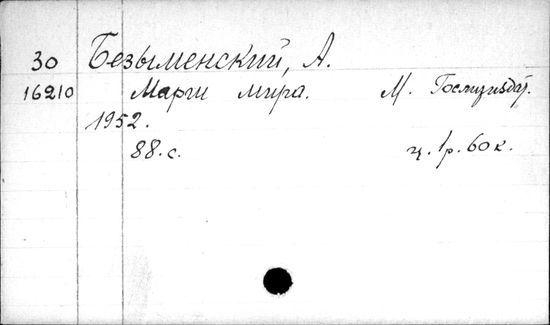 30 Безыменский, А.
16210 Марш мира. М. Госмузиздат.
1952.
88.с. ц. 1р. 60к.